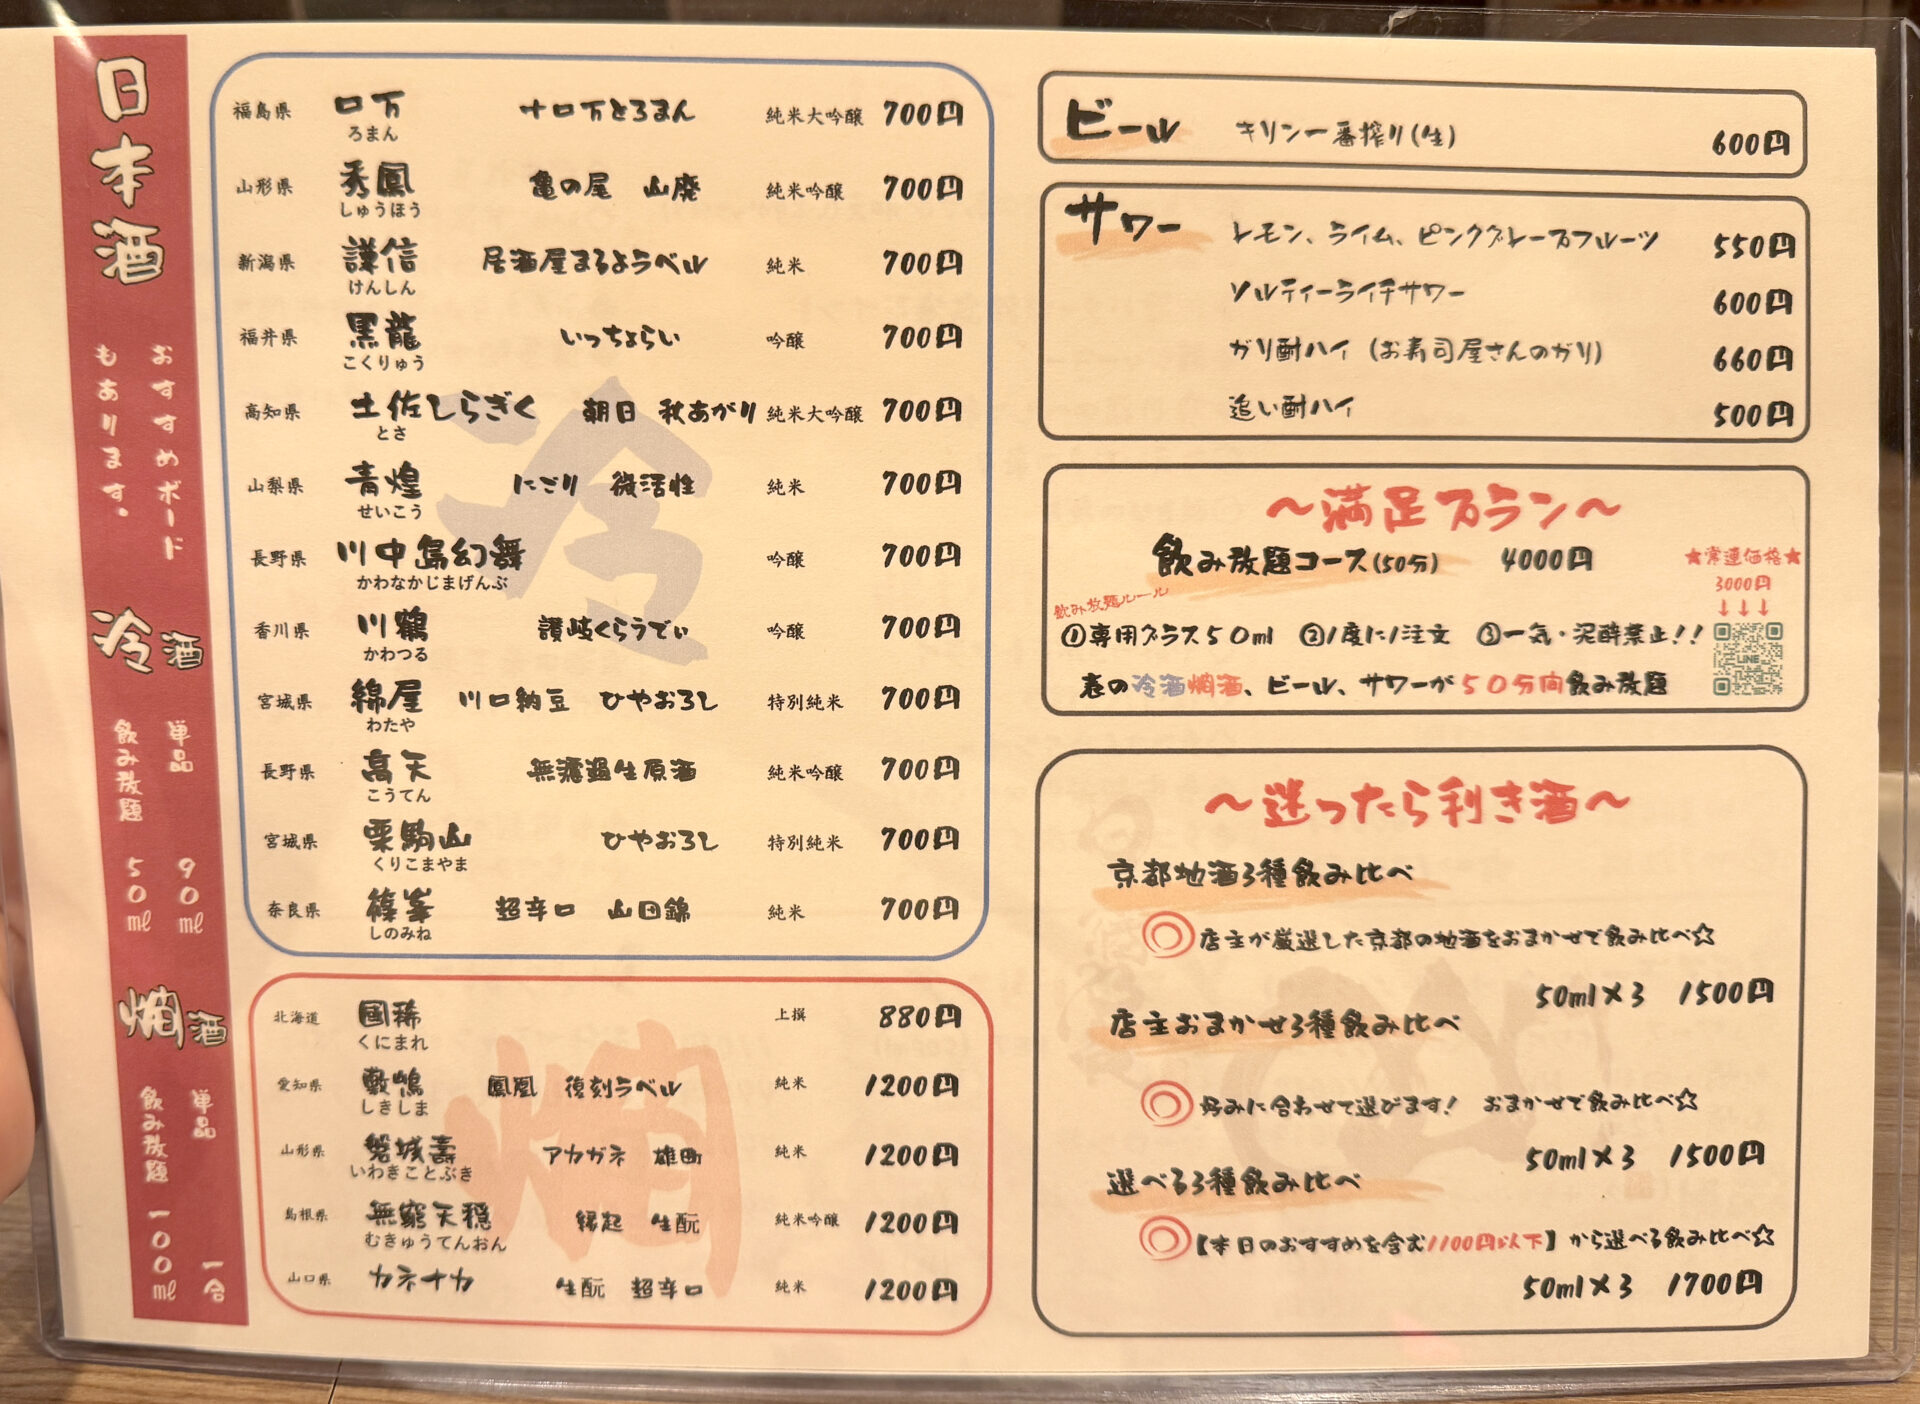 日本酒
おすすめボード
もあります。
冷酒
単品 90㎖
飲み放題 50㎖
燗酒
単品 一合
飲み放題 一00㎖
福島県 ロ万 十ロ万とろまん 純米大吟醸 700円
ろまん
山形県 秀鳳 亀の尾 山廃 純米吟醸 700円
しゅうほう
新潟県 謙信 居酒屋まるようラベル 純米 700円
けんしん
福井県 黒龍 いっちょらい 吟醸 700円
こくりゅう
高知県 土佐しらぎく 朝日 秋あがり 純米大吟醸 700円
とさ
山梨県 青煌 にごり 微活性 純米 700円
せいこう
長野県 川中島幻舞 吟醸 700円
かわなかじまげんぶ
香川県 川鶴 讃岐くらうでぃ 吟醸 700円
かわつる
宮城県 綿屋 川口納豆 ひやおろし 特別純米 700円
わたや
長野県 高天 無濾過生原酒 純米吟醸 700円
こうてん
宮城県 栗駒山 ひやおろし 特別純米 700円
くりこまやま
奈良県 篠峯 超辛口 山田錦 純米 700円
しのみね
冷
北海道 國稀 上撰 880円
くにまれ
愛知県 敷嶋 鳳凰 復刻ラベル 純米 1200円
しきしま
山形県 磐城壽 アカガネ 雄町 純米 1200円
いわきことぶき
島根県 無窮天穏 縁起 生酛 純米吟醸 1200円
むきゅうてんおん
山口県 カネナカ 生酛 超辛口 純米 1200円
燗
ビール キリン一番搾り(生) 600円
サワー レモン、ライム、ピンクグレープフルーツ 550円
ソルティーライチサワー 600円
ガリ酎ハイ (お寿司屋さんのガリ) 660円
追い酎ハイ 500円
～満足プラン～
飲み放題コース(50分) 4000円
★常連価格★
3000円
↓↓↓
飲み放題ルール
①専用グラス50ml ②1度に1注文 ③一気・泥酔禁止!!
LINE
表の冷酒燗酒、ビール、サワーが50分間飲み放題
～迷ったら利き酒～
京都地酒3種飲み比べ
◎店主が厳選した京都の地酒をおまかせで飲み比べ☆
50ml×3 1500円
店主おまかせ3種飲み比べ
◎好みに合わせて選びます! おまかせで飲み比べ☆
50ml×3 1500円
選べる3種飲み比べ
◎【本日のおすすめを含む1100円以下】から選べる飲み比べ☆
50ml×3 1700円